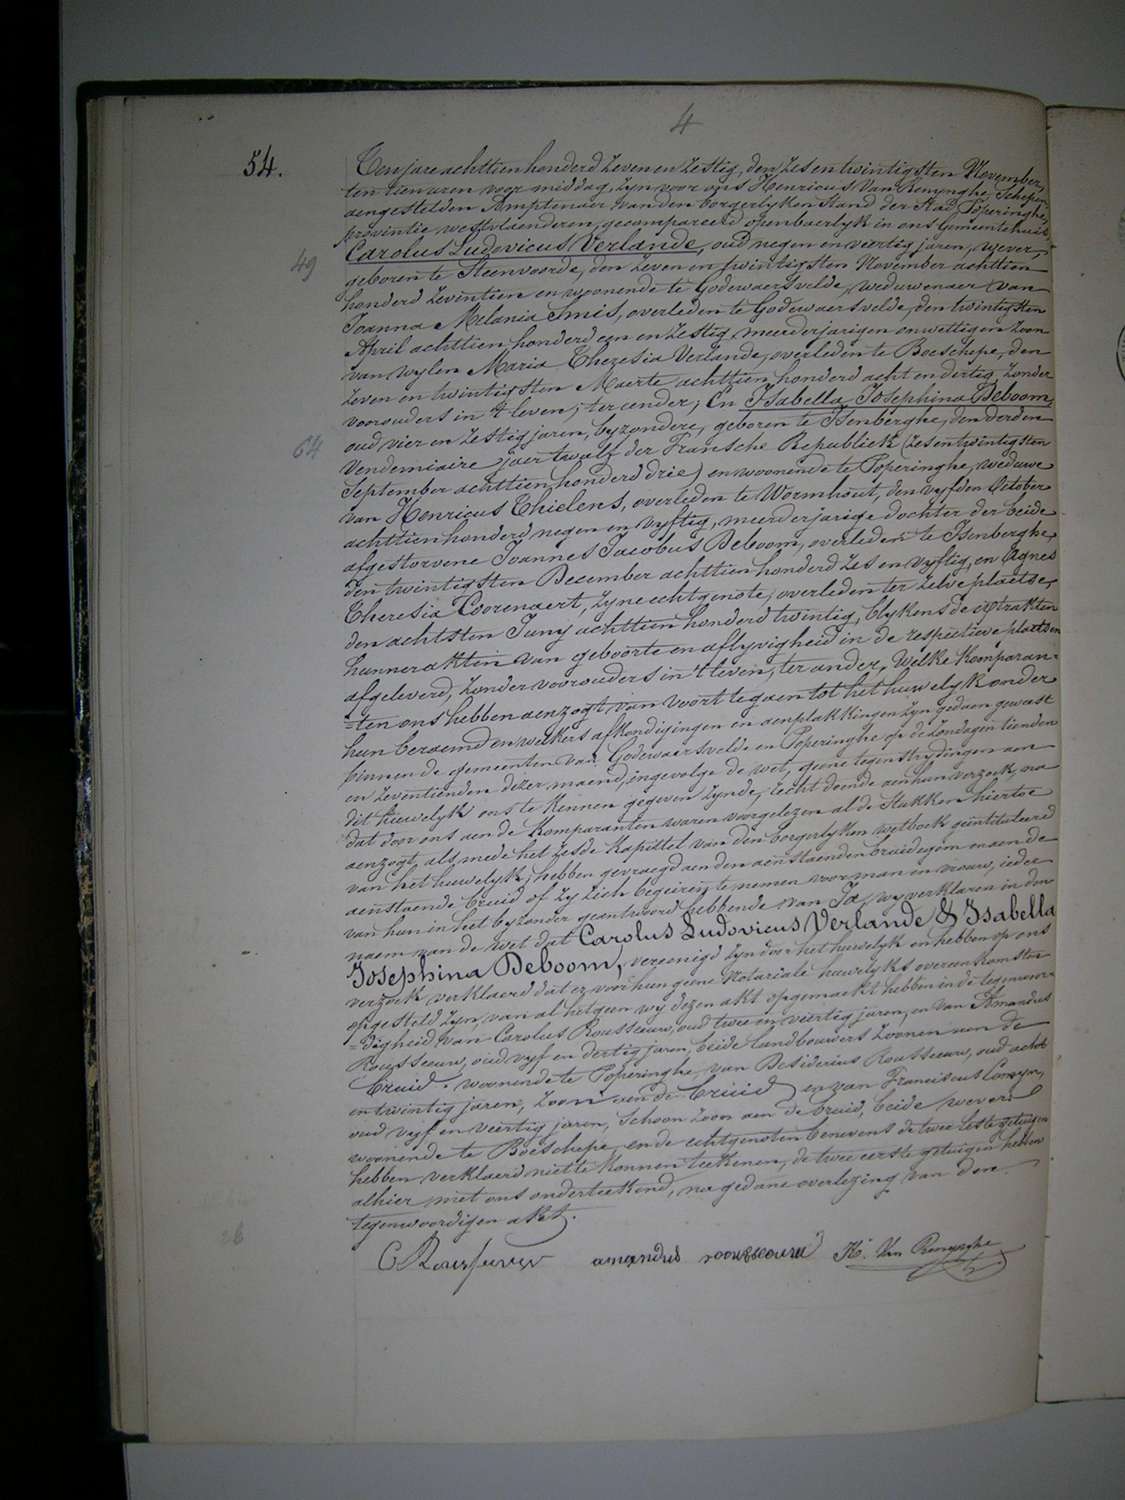 4
54.
Ten jare achttien honderd zeven en zestig, den zes en twintigsten November,
ten tien uren voor middag, zyn voor ons Henricus Van Renynghe, Schepen
aengestelden Amptenaer van den borgerlyken Stand der Stad Poperinghe,
provintie westvlaenderen, gecompareerd openbaerlyk in ons Gemeentehuis,
49
Carolus Ludovicus Verlande, oud negen en veertig jaren, wever,
geboren te Steenvoorde, den zeven en twintigsten November achttien
honderd zeventien en woonende te Godewaersvelde, weduwenaer van
Joanna Melania Smis, overleden te Godewaersvelde, den twintigsten
April achttien honderd een en zestig, meerderjarigen onwettigen zoon
van wylen Maria Theresia Verlande, overleden te Boeschepe, den
zeven en twintigsten Maerte achttien honderd acht en dertig, zonder
voorouders in 't leven; ter eender; En Isabella Josephina Deboom,
64
oud vier en zestig jaren, byzondere, geboren te Isenberghe, den derden
Vendemiaire jaer twalf der Fransche Republiek (zes en twintigsten
September achttien honderd drie) en woonende te Poperinghe, weduwe
van Henricus Thielens, overleden te Wormhout, den vyfden October
achttien honderd negen en vyftig, meerderjarige dochter der beide
afgestorvene Joannes Jacobus Deboom, overleden te Isenberghe,
den twintigsten December achttien honderd zes en vyftig, en Agnes
Theresia Coorenaert, zyne echtgenote, overleden ter zelve plaetse,
den achtsten Juny achttien honderd twintig, blykens de extrakten
hunner akten van geboorte en aflyvigheid in de respectieve plaetsen
afgeleverd, zonder voorouders in 't leven, ter ander, Welke Komparan-
=ten ons hebben aenzogt van voort te gaen tot het huwelyk onder
hun beraemd en welkers afkondigingen en aenplakkingen zyn gedaen geweest
binnen de gemeenten van Godewaersvelde en Poperinghe op de Zondagen tienden
en zeventienden dezer maend, ingevolge de wet, geene tegenstrydingen aen
dit huwelyk ons te kennen gegeven zynde, recht doende aen hun verzoek, na
dat door ons aen de Komparanten waren voorgelezen al de Stukken hiertoe
aenzogt, als mede het zesde kapittel van den borgerlyken wetboek geintituleerd
van het huwelyk; hebben gevraegd aen den aenstaenden bruidegom en aen de
aenstaende bruid of zy zich begeiren te nemen voor man en vrouw, ieder
van hun in het byzonder geantwoord hebbende van Ja, wy verklaren in den
naem van de wet dat Carolus Ludovicus Verlande & Isabella
Josephina Deboom, vereenigd zyn door het huwelyk en hebben op ons
verzoek verklaerd dat er voor hun geene Notariale huwelyks overeenkomsten
opgesteld zyn, van al het geen wy dezen akt opgemaekt hebben in de tegenwoor-
=digheid van Carolus Rousseeuw, oud twee en veertig jaren, en van Amandus
Rousseeuw, oud vyf en dertig jaren, beide landbouwers zoonen aen de
bruid, woonende te Poperinghe, van Desiderius Rousseeuw, oud acht
en twintig jaren, zoon aen de bruid, en van Franciscus Comeyn,
oud vyf en veertig jaren, schoon zoon aen de bruid, beide wevers
woonende te Boeschepe, en de echtgenoten benevens de twee leste getuigen
hebben verklaerd niet te konnen teekenen, de twee eerste getuigen hebben
alhier met ons onderteekend, na gedane overlezing van dere
tegenwoordigen akt.
C Rousseeuw amandus roousseeuw H. Van Renynghe